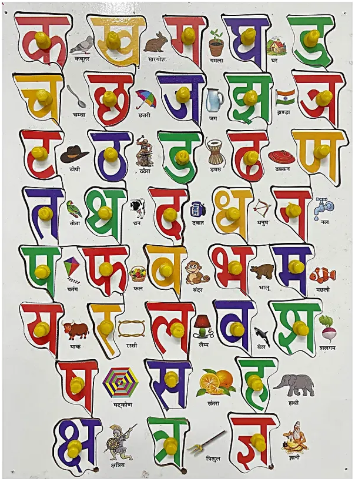 क ख ग घ ङ
कबूतर खरगोश गमला घर
च छ ज झ ञ
छतरी जग झण्डा
ट ठ ड ढ ण
टोपी ठठेरा डमरू ढक्कन
त थ द ध न
तोता थन धनुष नल
प फ ब भ म
पतंग फल बंदर भालू मछली
य र ल व श
याक रस्सी लैम्प वेल शलगम
ष स ह
षट्कोण संतरा हाथी
क्ष त्र ज्ञ
क्षत्रिय त्रिशूल ज्ञानी